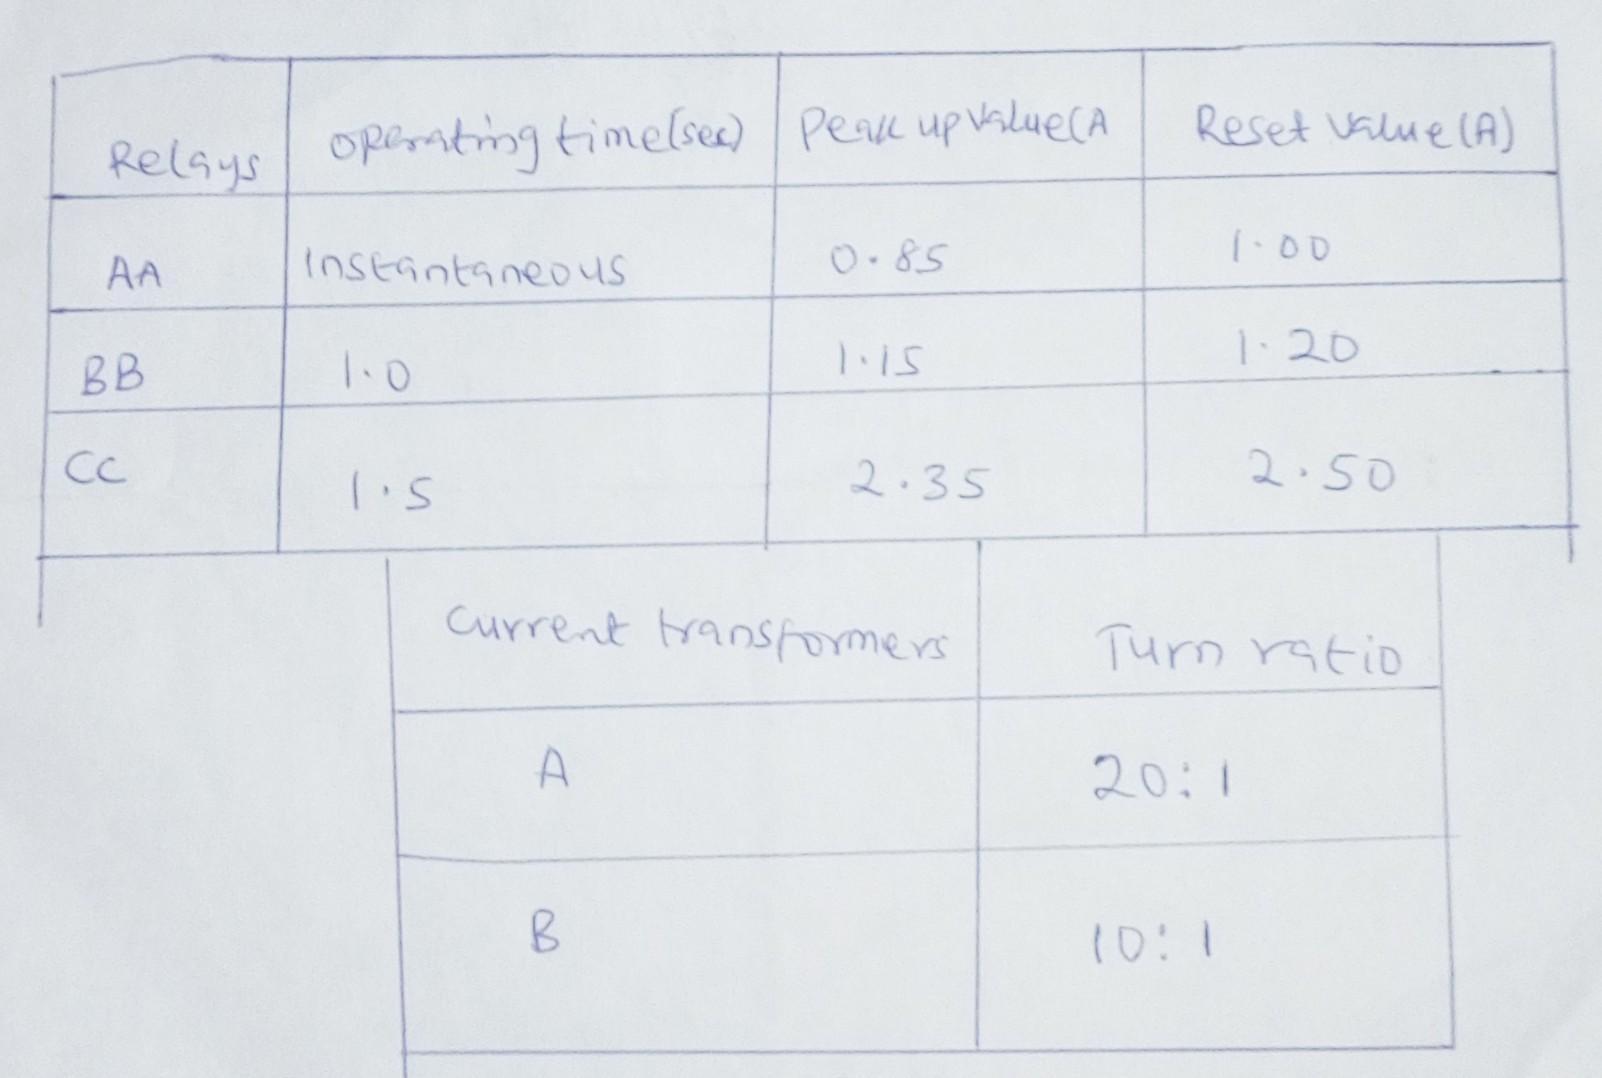 Relays operating time(sec) Peak up value(A Reset value(A)
AA Instantaneous 0.85 1.00
BB 1.0 1.15 1.20
CC 1.5 2.35 2.50
Current transformers Turn ratio
A 20:1
B 10:1